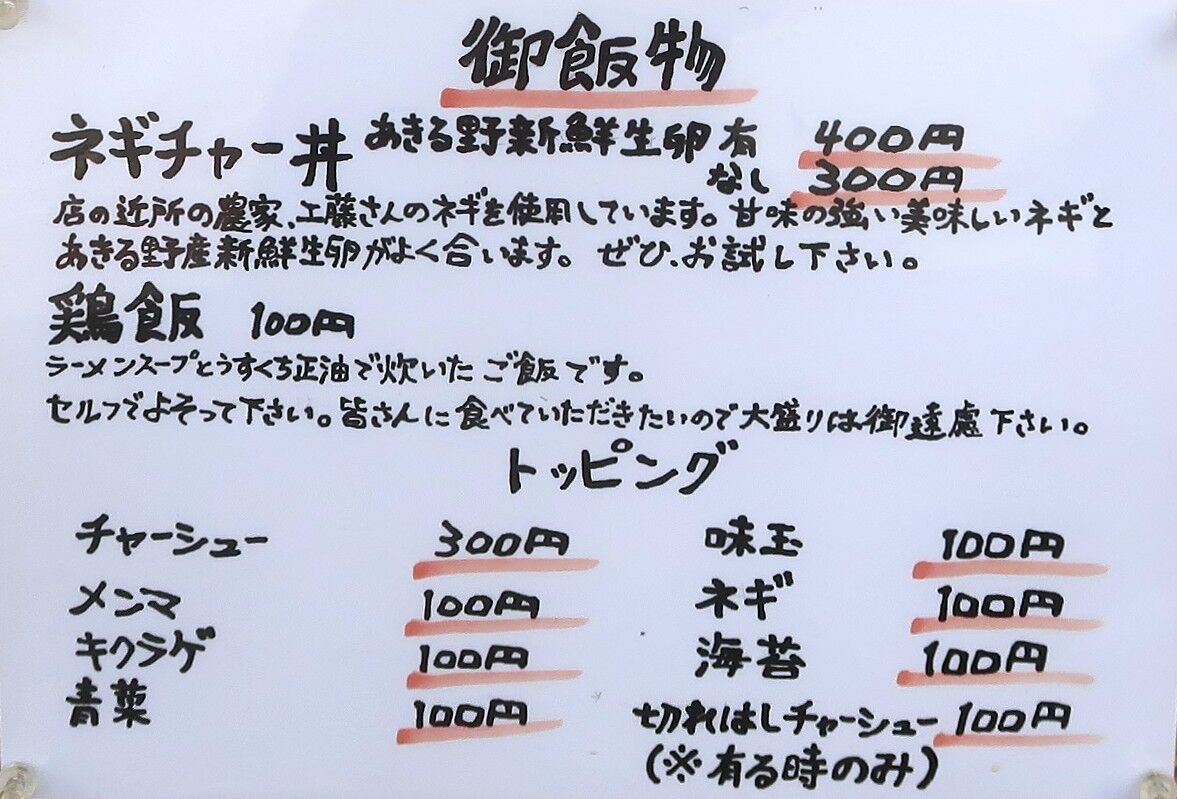 御飯物
ネギチャー丼 あきる野新鮮生卵 有 400円
なし 300円
店の近所の農家、工藤さんのネギを使用しています。甘味の強い美味しいネギと
あきる野産新鮮生卵がよく合います。ぜひ、お試し下さい。
鶏飯 100円
ラーメンスープとうすくち正油で炊いたご飯です。
セルフでよそって下さい。皆さんに食べていただきたいので大盛りは御遠慮下さい。
トッピング
チャーシュー 300円 味玉 100円
メンマ 100円 ネギ 100円
キクラゲ 100円 海苔 100円
青菜 100円 切れはしチャーシュー 100円
(※有る時のみ)